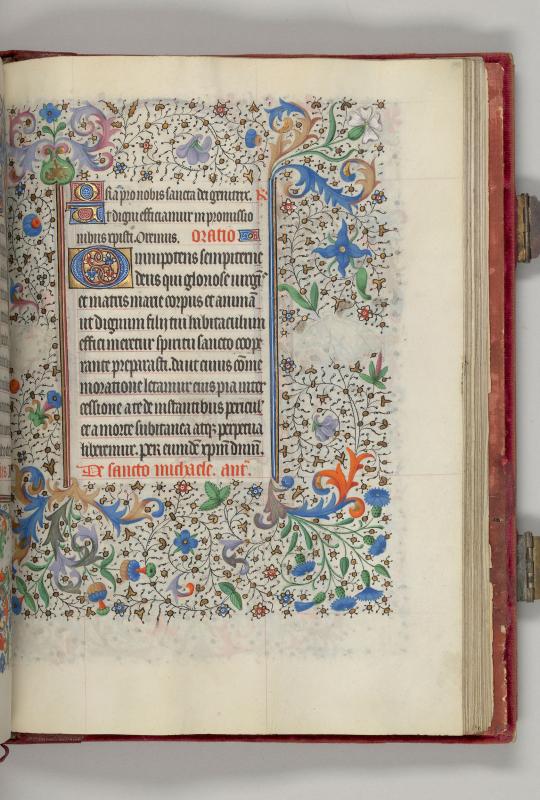 Ora pro nobis sancta dei genitrix. R
Ut digni efficiamur ꝓmissio
nibus xp̃i. Oremus. Oratio
Omnipotens sempiterne
deus qui gloriose uirgīs
et matris marie corpus et animā
ut dignum filij tui habitaculum
effici mereret̃ spiritu sancto coope
rante preparasti. da ut cuius cōme
moratione letamur eius pia inter
cessione a te de instantibus pericul̃
et a morte subitanea atqꝫ perpetua
liberemur. Per eundē xp̃m dn̄m.
De sancto michaele. ant̃.